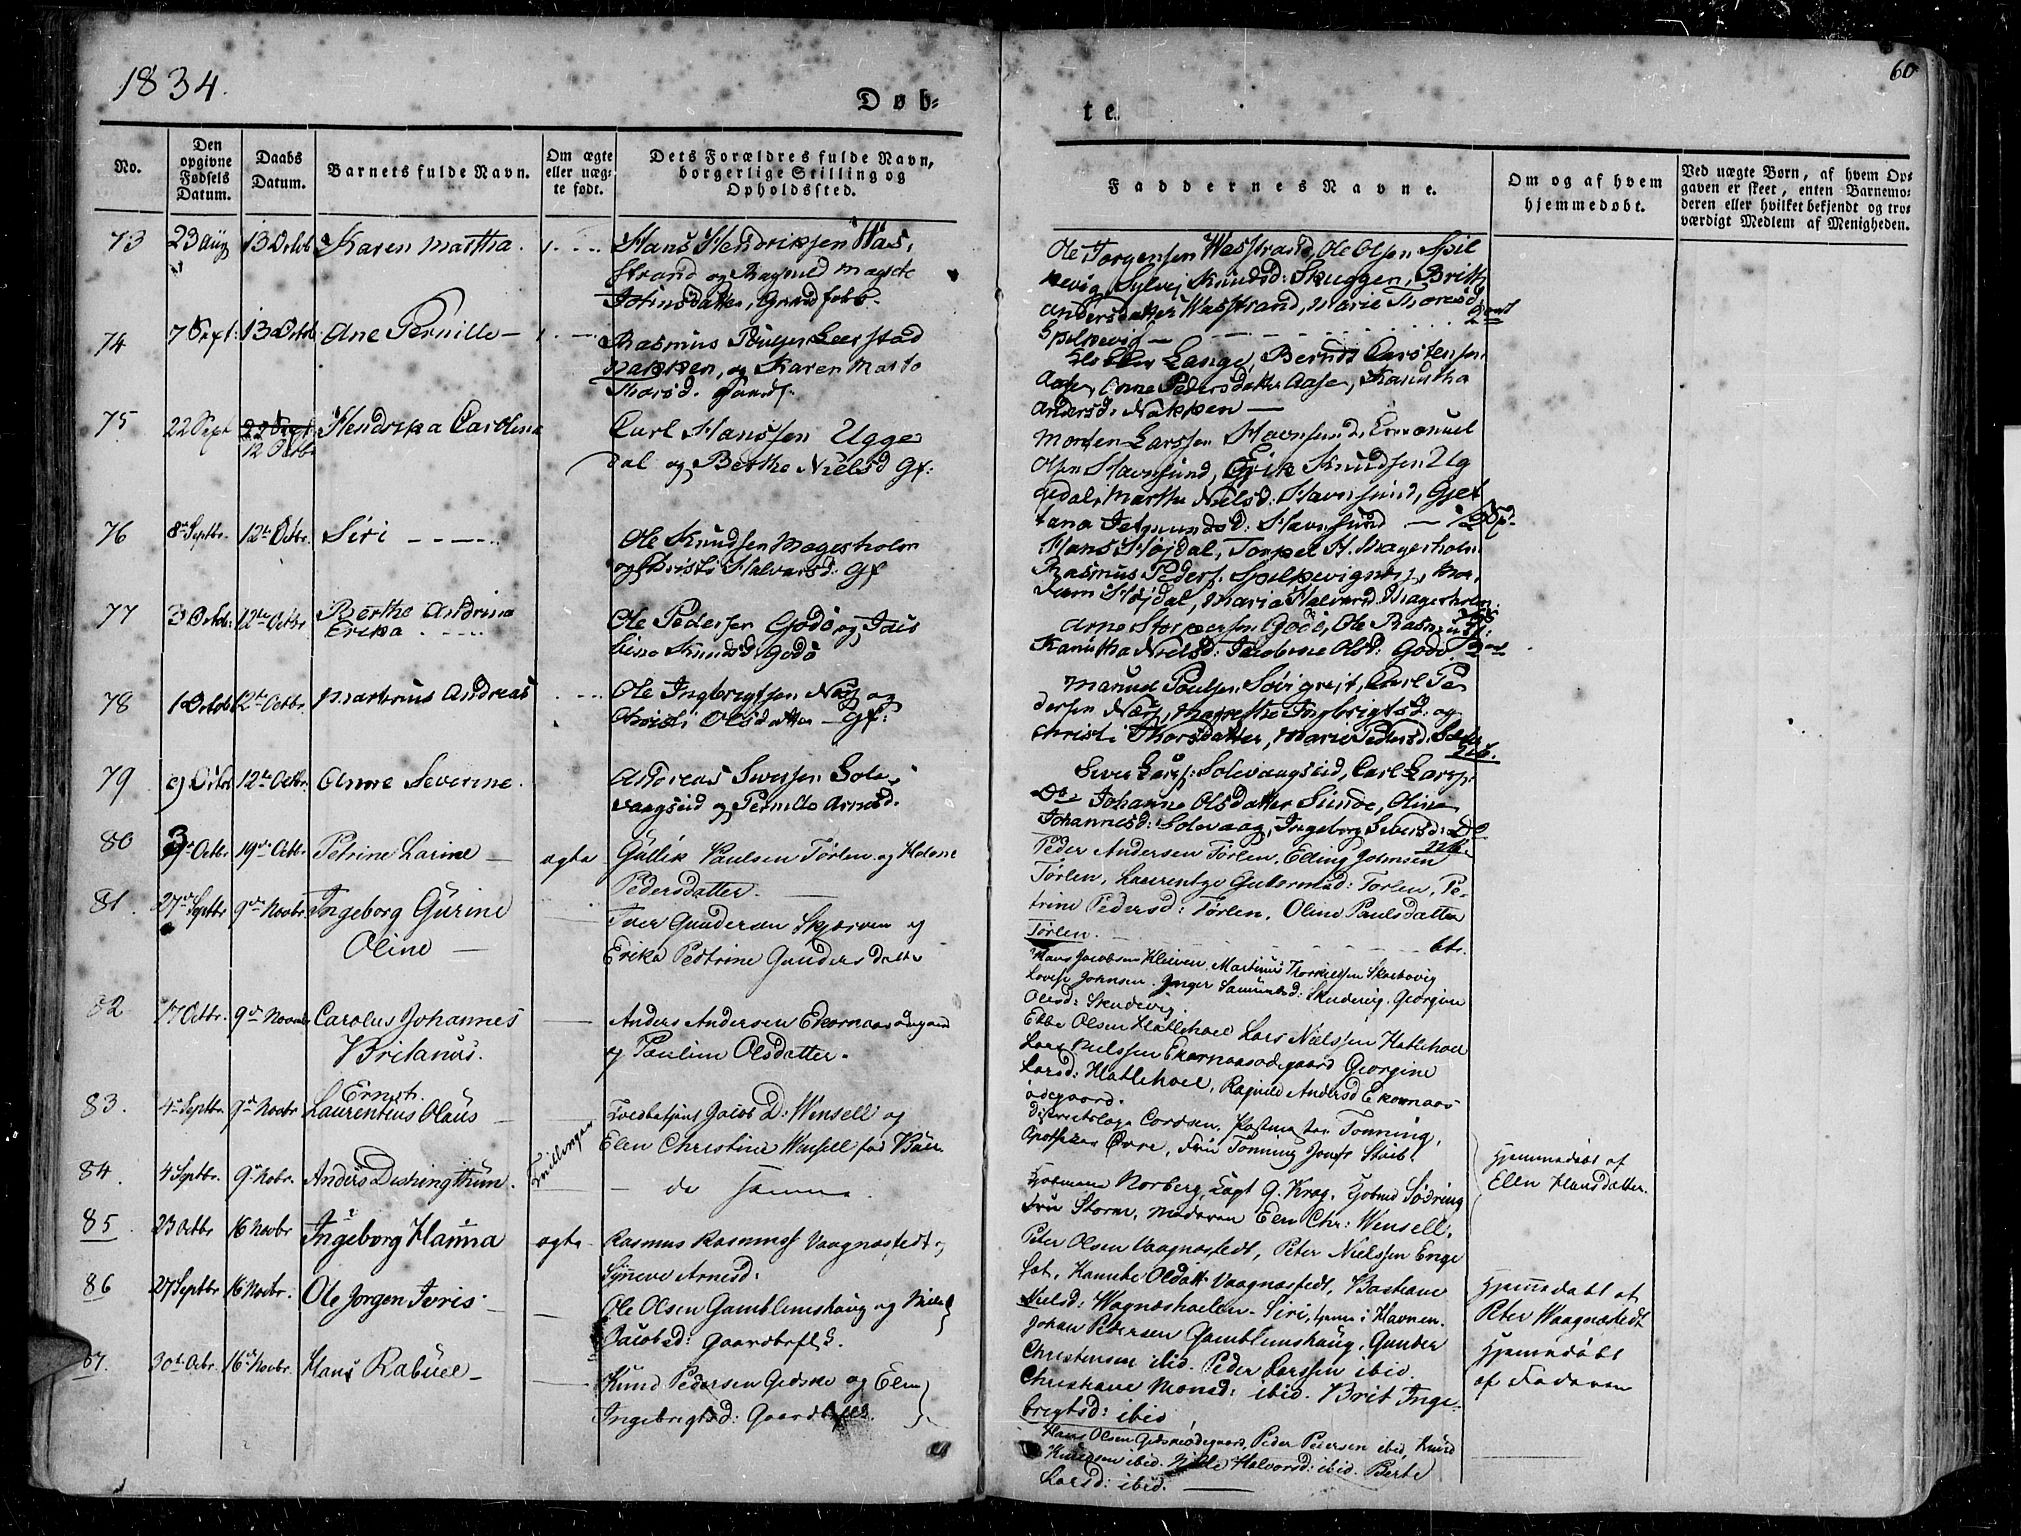 1834.
60
Døb-
te.
No.
Den opgivne Fødsels Datum.
Daabs Datum.
Barnets fulde Navn.
Om ægte eller uægte født.
Dets Forældres fulde Navn, borgerlige Stilling og Opholdssted.
Faddernes Navne.
Om og af hvem hjemmedøbt.
Ved uægte Børn, af hvem Opgaven er skeet, enten Barnemoderen eller hvilket bekjendt og troværdigt Medlem af Menigheden.
73 23 Aug 13 Octob Karen Martha.
Hans Hendriksen Was-
strand og Magrete
Johnsdatter,
Ole Jørgensen Wasstrand, Ole Olsen Spil
kevig, Sylvej Knudsd: Skuggen, Brith
Andersdatter Wasstrand, Marie Thoresd
Spilkevig —
74 7 Sept: 13 Octob Ane Pernille —
Rasmus Poulsen Leerstad
nakken, og Karen Marta
Lange, Carstensen
Aase, Anne Pedersdatter Aase, Kanutha
Andersd: Nakken —
75 22 Sept 22 Sept 12 Octbr Hendrika Carolina
Carl Hanssen Ugge
dal og Berthe Nielsd Gf:
Morten Larssen Havnsund, Emanuel
Olsen Havnsund, Erik Knudsen Ug
gedal, Marthe Nielsd: Havnsund, Gjet
76 8de Septbr. 12te Octbr. Siri
Ole Knudsen Magerholm
og Christi Halvorsd: Gf
Hans Højdal, Torkel H. Magerholm
Rasmus Peders. Spilkevig
Højdal, Maria Halvorsd. Magerholm.
77 3 Octob: 12te Octbr Berthe Andrina
Erika
Ole Pedersen Godø og
Knudsd. Godø
Arne Godø, Ole Rasmus
Kanutha Nielsd: Jacobine Olsd: Godø
78 1 Octob 12te Octbr. Martinus Andreas
Ole Ingbrigtsen Nøs og
Christi Olsdatter — Gf:
Poulsen Carl Pe
dersen Nøs, Marethe Ingbrigtsd: og
Christi Thorsdatter, Marie Pedersd.
79 9 Octbr 12te Octbr. Anne Severine.
Andreas Sivertsen Sole
vaagseid og Pernille Arnesd.
Siver Larss: Solevaagseid, Carl Larss:
Do Johanne Olsdatter Sunde, Oline
Johannesd: Solevaag, Ingeborg Siversd: Do
80 3 Octbr 19de Octbr. Petrine Larine — ægte
Gullik Paulsen Tørlen og Helene
Pedersdatter.
Peder Andersen Tørlen, Elling Johnsen
Tørlen, Laurentze Guttormsd: Tørlen, Pe-
trine Pedersd: Tørlen, Oline Paulsdatter
Tørlen.
81. 27de Septbr 9de Novbr Ingeborg Gurine
Oline —
Iver Gundersen Skjerven og
Erika Pedtrine Gundersdatter
Hans Jacobsen Kleiven, Martinus Thorkelsen Skotevig
Johnsen. Inger Samuelsd: Skudevig. Georgine
Olesd: Skudevig.
82 17 Octbr. 9de Novbr Carolus Johannes
Britanus.
Anders Andersen Ekornaasødegaard
og Pauline Olsdatter.
Ebbe Olsen Hatlehoel Lars Nielssen Hatlehoel
Lars Nielssen Ekornaasødegaard Georgine
Larsd: Hatlehoel, Ragnild Andersd Ekornaas
ødegaard.
83. 4de Septbr. 9de Novbr Ernst.
Laurentius Olaus —
Jacob D: Wensell og
Elen Christine Wensell
Districtslæge Cordsen, Postmester Tønning,
Apotheker Øvre, Frue Tønning Jomfr Stub.
84 4 Septbr. 9 Nobr. Anders Dishingthun. Tvillinger
— de samme.
Norberg, Capt G. Krag, Kjøbmd Sødring
Frue Storm, Madame Elen Chr: Wensell.
Hjemmedøbt af
Ellen Hansdatter.
85 23 Octbr 16 Novbr Ingeborg Hanna ægte
Rasmus Rasmuss Vaagnæstedt og
Synneve Arnesd:
Peter Olsen Vaagnæstedt, Peter Nielssen Enge
set, Vaagnæstedt, Bastiane
Nielsd: Siri, i Havnen.
Hjemmedøbt af
Peter Waagnæstedt
86 27 Septbr 16 Novbr. Ole Jørgen Iveris —
Ole Olsen Gamblemshaug og
Jacobsd: Gaardbrflk.
Johan Petersen Gamblemshaug, Gunder
Christensen ibid. Peder Larssen ibid.
Christiane Monsd: ibid. Brit Inge-
brigtsd: ibid
Hjemmedøbt
af Faderen
87. 30te Ocbr. 16de Novbr. Hans Rabuel —
Knud Pedersen Gedske og Elen
Ingebrigtsd: Gaardbrflk.
Hans Olsen Gedskeødegaard, Peder Petersen ibid, Knud
Knudsen ibid. Halvorsd: ibid. Berte
Larsd: ibid.